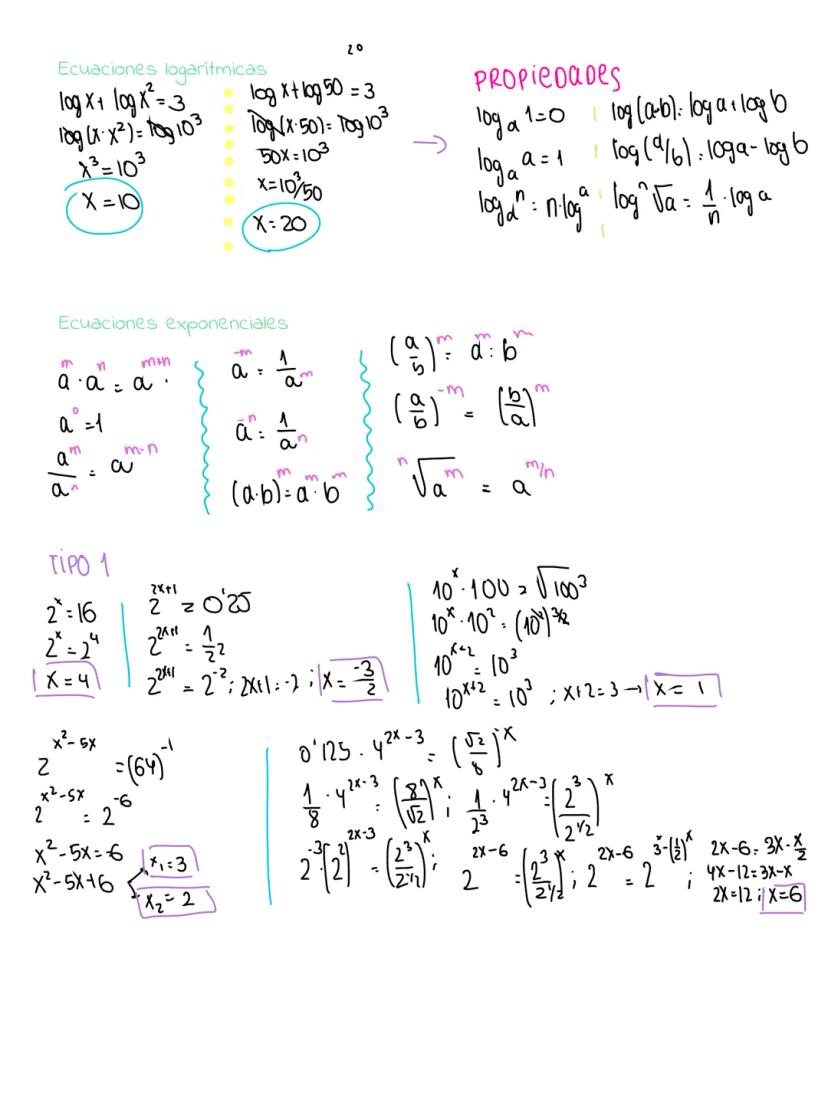 20
Ecuaciones logarítmicas
log x + log x² = 3
log(x·x²) = log 10³
x³ = 10³
x = 10
log x + log 50 = 3
log(x·50) = log 10³
50x = 10³
x = 10³/50
x = 20
→
PROPIEDADES
logₐ 1 = 0
logₐ a = 1
log aⁿ = n·log a
log(a·b) = log a + log b
log(a/b) = log a - log b
log ⁿ√a = 1/n · log a
Ecuaciones exponenciales
a^m · a^n = a^(m+n) ·
a⁰ = 1
a^m / a^n = a^(m-n)
a^(-m) = 1/a^m
a^(-n) = 1/a^n
(a·b)^m = a^m · b^m
(a/b)^m = a^m : b^m
(a/b)^(-m) = (b/a)^m
ⁿ√a^m = a^(m/n)
TIPO 1
2^x = 16
2^x = 2⁴
x = 4
2^(2x+1) = 0'25
2^(2x+1) = 1/2²
2^(2x+1) = 2^(-2) ; 2x+1 = -2 ; x = -3/2
10^x · 100 = √100³
10^x · 10² = (10²)^(3/2)
10^(x+2) = 10³
10^(x+2) = 10³ ; x+2 = 3 → x = 1
2^(x²-5x) = (64)^(-1)
2^(x²-5x) = 2^(-6)
x² - 5x = -6
x² - 5x + 6
x₁ = 3
x₂ = 2
0'125 · 4^(2x-3) = (√2/8)^(-x)
1/8 · 4^(2x-3) = (8/√2)^x ; 1/2³ · 4^(2x-3) = (2³/2^(1/2))^x
2^(-3) · (2²)^(2x-3) = (2³/2^(1/2))^x ; 2^(2x-6) = (2³/2^(1/2))^x ; 2^(2x-6) = 2^(3^x-(1/2)^x) ;
2x-6 = 3x - x/2
4x-12 = 3x-x
2x = 12 ; x = 6